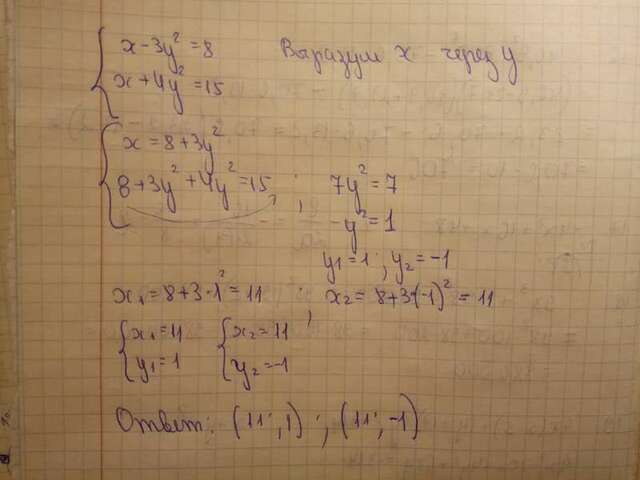 x - 3y² = 8 Выразим x через y
x + 4y² = 15
x = 8 + 3y²
8 + 3y² + 4y² = 15 ; 7y² = 7
- y² = 1
y1 = 1 ; y2 = -1
x1 = 8 + 3·1² = 11 ; x2 = 8 + 3·(-1)² = 11
x1 = 11 x2 = 11
y1 = 1 y2 = -1
Ответ: (11 ; 1) ; (11 ; -1)